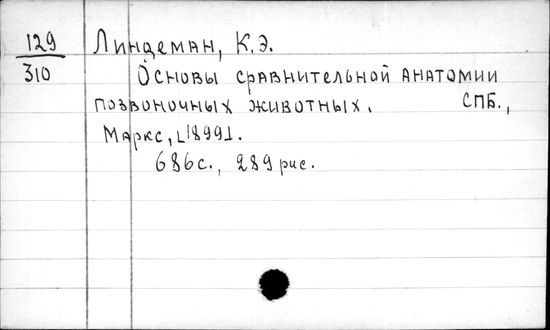 129 Линдеман, К.Э.
310 Основы сравнительной анатомии
позвоночных животных. СПБ.,
Маркс, [1899].
686с., 289 рис.